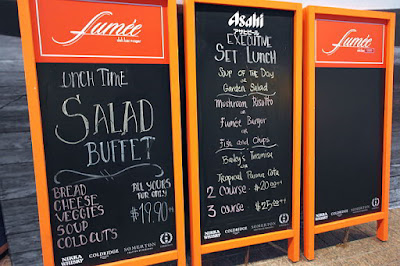 fumée
LUNCH TIME
SALAD
BUFFET
BREAD
CHEESE
VEGGIES
SOUP
COLD CUTS
ALL YOURS
FOR ONLY
$19.90++
NIKKA
WHISKY
COLDRIDGE
SOMERTON
Asahi
アサヒビール
EXECUTIVE
SET LUNCH
Soup of the Day
or
Garden Salad
Mushroom Risotto
or
Fumée Burger
or
Fish and Chips
Bailey's Tiramisu
or
Tropical Panna Cotta
2 course : $20.00++
3 course : $25.00++
NIKKA
WHISKY
COLDRIDGE
SOMERTON
fumée
NIKKA
WHISKY
COLDRIDGE
SOMERTON